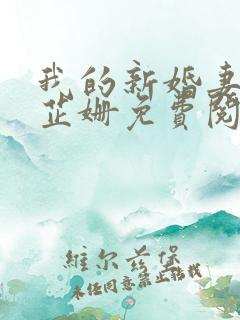 我的新婚妻
芷姗免费阅
維尔兹堡
未经同意禁止转载